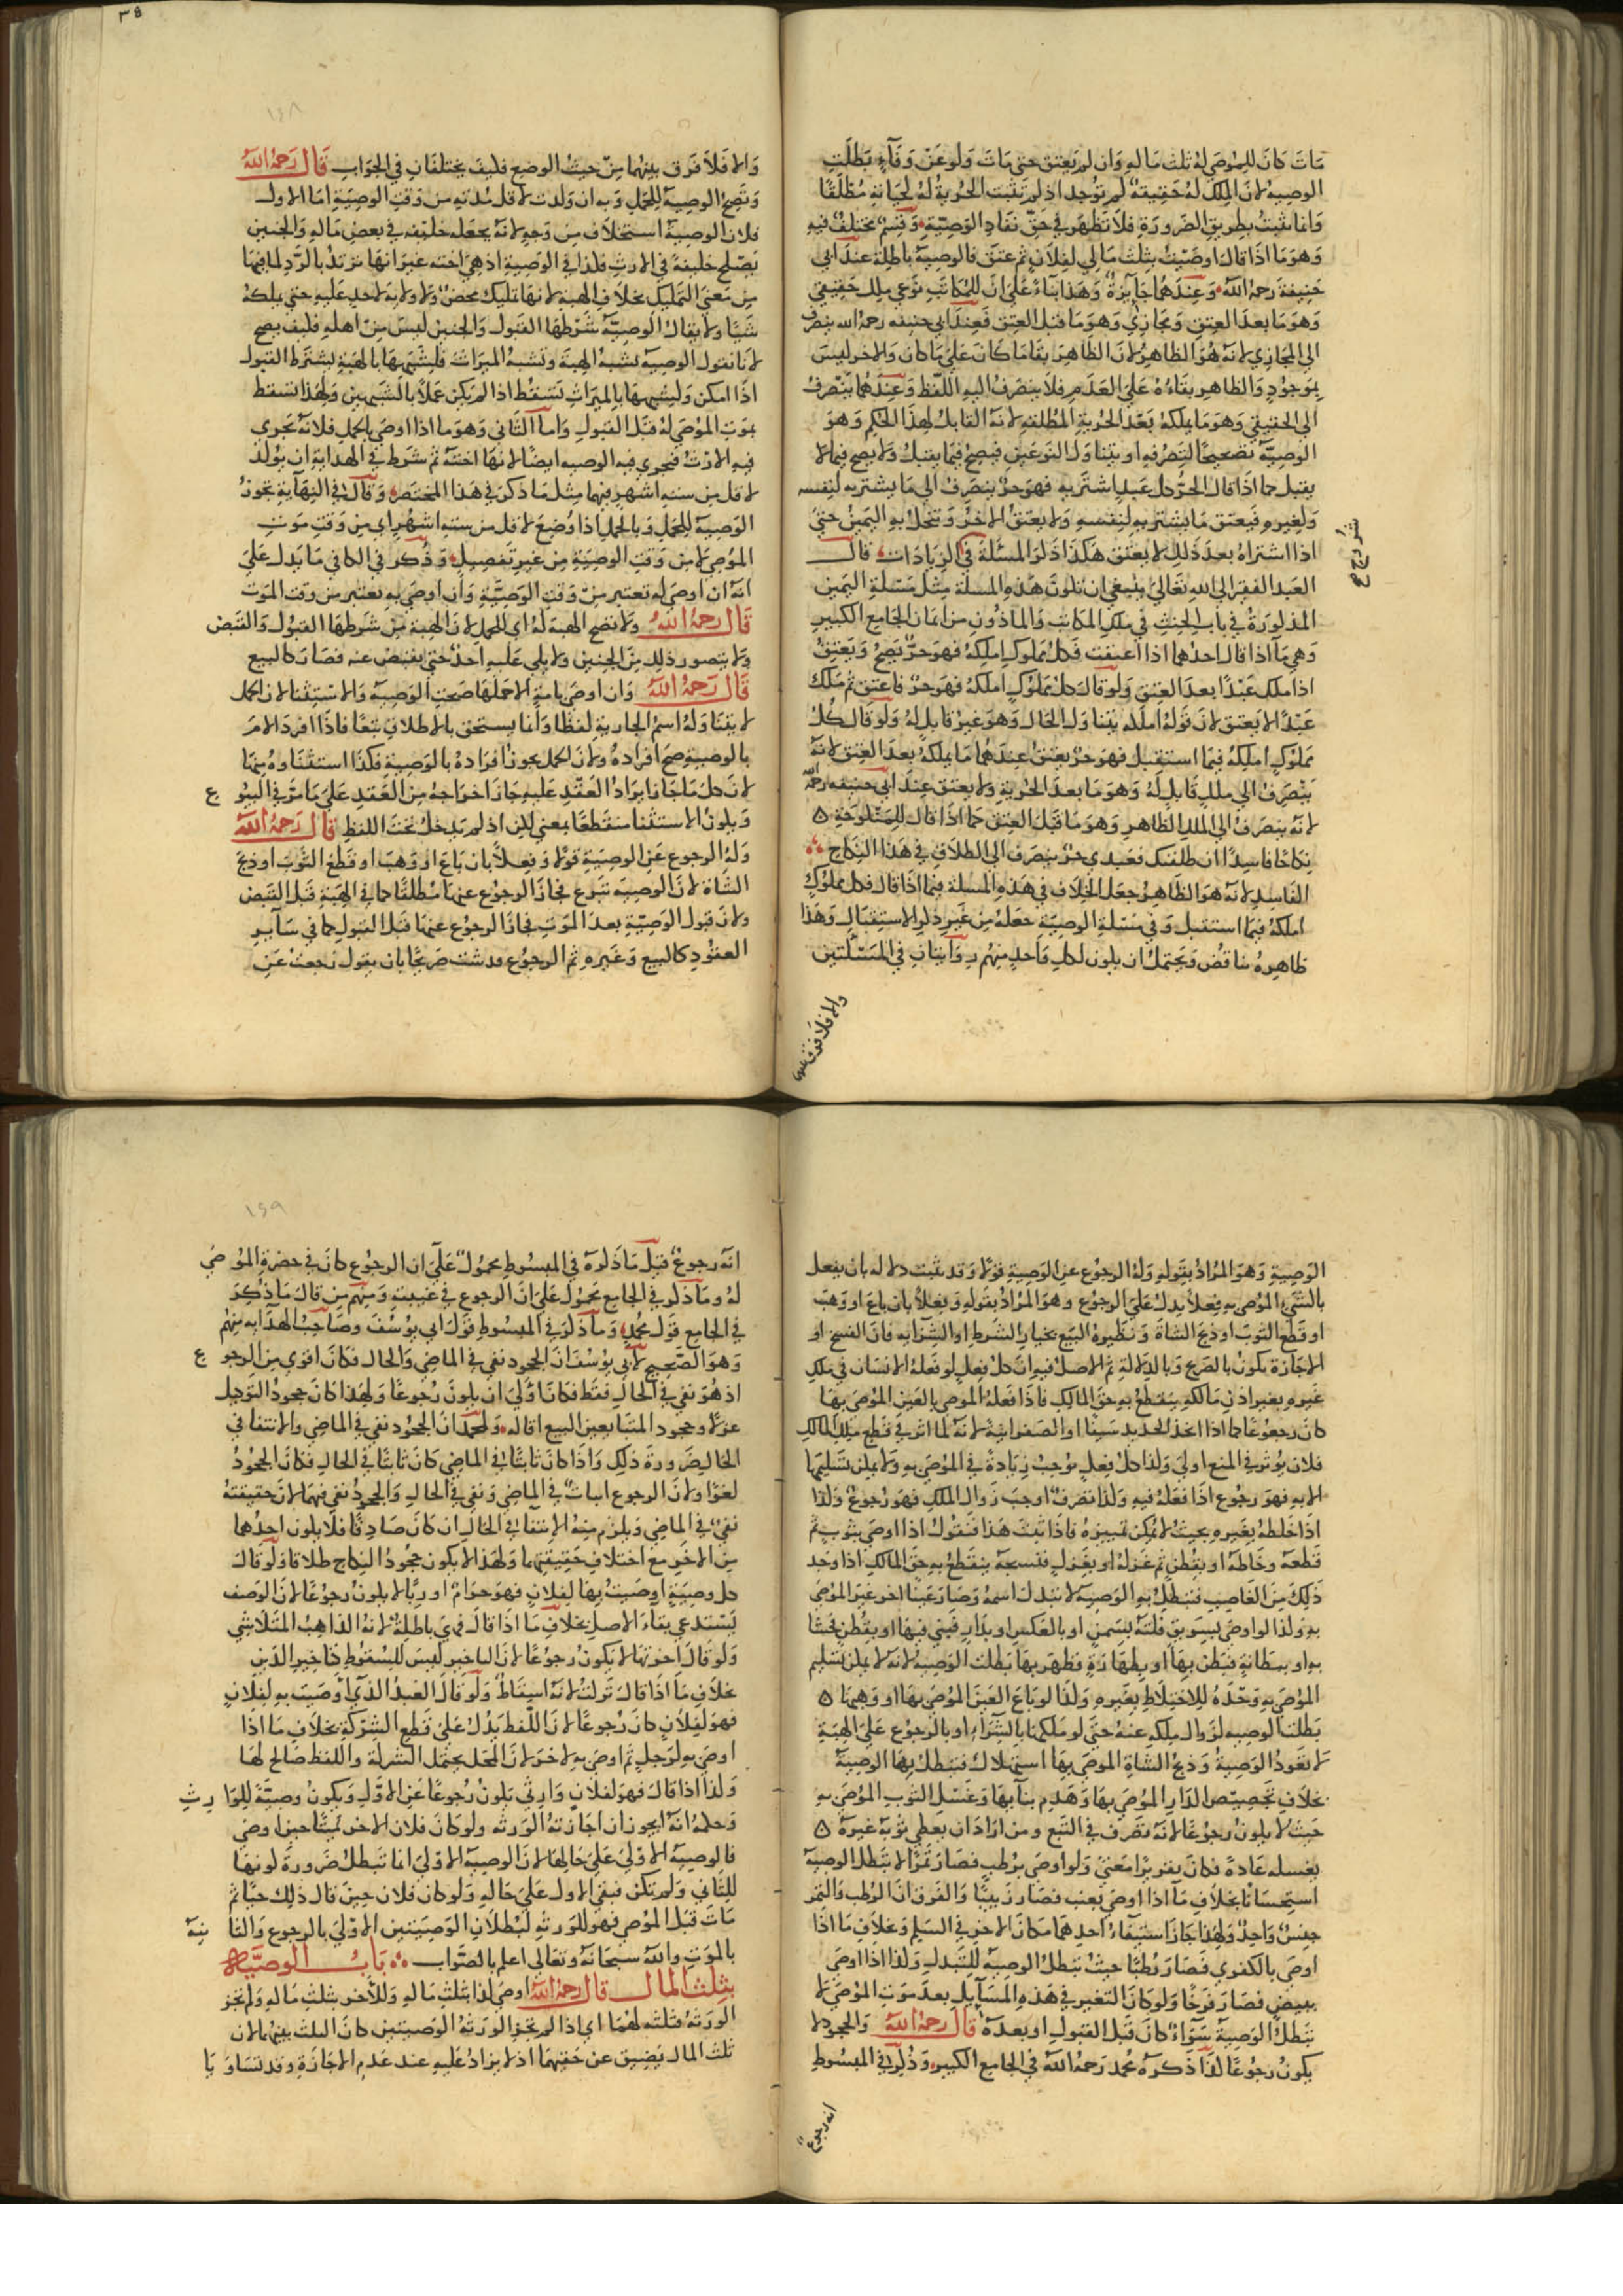 مات كان للموصى له ثلث ماله وان لم يعتق حتى مات ولو عن وفاء بطلت
الوصية لان الملك له حقيقة لم توجد اذ لم تثبت الحرية له لحياته مطلقا
وانما تثبت بطريق الضرورة فلا تظهر في حق نفاد الوصية وقسم مختلف فيه
وهو ما اذا قال اوصيت بثلث مالي لفلان ثم عتق فالوصية باطلة عند ابي
حنيفة رحمه الله وعندهما جايزة وهذا بناء على ان للمكاتب نوعي ملك حقيقي
وهو ما بعد العتق ومجازي وهو ما قبل العتق فعند ابي حنيفه رحمه الله ينصرف
الى المجازي لانه هو الظاهر لان الظاهر بقا ما كان على ما كان والاخر ليس
بموجود والظاهر بقاءه على العدم فلا ينصرف اليه اللفظ وعندهما ينصرف
الى الحقيقي وهو ما يملكه بعد الحرية المطلقة لانه القابل لهذا الحكم وهو
الوصية تصحيحا لتصرفه او يتناول النوعين فيصح فيما يقبل ولا يصح فيما لا
يقبل كما اذا قال الحر كل عبد اشتريه فهو حر ينصرف الى ما يشتريه لنفسه
ولغيره فيعتق ما يشتريه لنفسه ولا يعتق الاخر وتنحل به اليمين حتى
اذا اشتراه بعد ذلك لا يعتق هكذا ذكر المسئلة في الزيادات قال
العبد الفقير الى الله تعالى ينبغي ان تكون هذه المسلة مثل مسئلة اليمين
المذكورة في باب الحنث في ملك المكاتب والماذون من ايمان الجامع الكبير
وهي ما اذا قال احدهما اذا اعتقت فكل مملوك املكه فهو حر يصح ويعتق
اذا ملك عبدا بعد العتق ولو قال كل مملوك املكه فهو حر فاعتق ثم ملك
عبدا لا يعتق لان قوله املكه يتناول الحال وهو غير قابل له ولو قال كل
مملوك املكه فيما استقبل فهو حر يعتق عندهما ما يملكه بعد العتق لانه
ينصرف الى ملك قابل له وهو ما بعد الحرية ولا يعتق عند ابي حنيفه رحمه الله
لانه ينصرف الى الملك الظاهر وهو ما قبل العتق كما اذا قال للمنكوحة
نكاحا فاسدا ان طلقتك فعبدي حر ينصرف الى الطلاق في هذا النكاح
الفاسد لانه هو الظاهر جعل الخلاف في هذه المسلة فيما اذا قال فكل مملوك
املكه فيما استقبل وفي مسئلة الوصية جعله من غير ذكر الاستقبال وهذا
ظاهره تناقض ويحتمل ان يكون لكل واحد منهم روايتان في المسئلتين
والا فلا فرق بينهما
والا فلا فرق بينهما من حيث الوضع فكيف يختلفان في الجواب قال رحمه الله
وتصح الوصية للحمل وبه ان ولدت لاقل مدته من وقت الوصية اما الاول
فلان الوصية استخلاف من وجه لانه يجعله خليفه في بعض ماله والجنين
يصلح خليفة في الارث فكذا في الوصية اذ هي اخته غير انها ترتد بالرد لما فيها
من معنى التمليك بخلاف الهبة لانها تمليك محض ولا ولاية لاحد عليه حتى يملكه
شيا ولا يقال الوصية شرطها القبول والجنين ليس من اهله فكيف يصح
لانا نقول الوصيه تشبه الهبة وتشبه الميراث فلشبهها بالهبة يشترط القبول
اذا امكن ولشبهها بالميراث تسقط اذا لم يكن عملا بالشبهين ولهذا تسقط
بموت الموصى له قبل القبول واما الثاني وهو ما اذا اوصى بالحمل فلانه يجري
فيه الارث فيجري فيه الوصيه ايضا لانها اخته ثم شرط في الهداية ان يولد
لاقل من سته اشهر فيهما مثل ما ذكر في هذا المختصر وقال في النهاية تجوز
الوصية للحمل وبالحمل اذا وضع لاقل من سته اشهر اي من وقت موت
الموصي لا من وقت الوصية من غير تفصيل وذكر في الكافي ما يدل على
انه ان اوصى له تعتبر من وقت الوصية وان اوصى به يعتبر من وقت الموت
قال رحمه الله ولا تصح الهبة له اي للحمل لان الهبة من شرطها القبول والقبض
ولا يتصور ذلك من الجنين ولا يلي عليه احد حتى يقبض عنه فصار كالبيع
قال رحمه الله وان اوصى بامة الا حملها صحت الوصية والاستثنا لان الحمل
لا يتناوله اسم الجارية لفظا وانما يستحق بالاطلاق تبعا فاذا افرد الام
بالوصية صح افرادها ولان الحمل يجوز افراده بالوصية فكذا استثناوه منها
لان كل ما جاز ايراد العقد عليه جاز اخراجه من العقد على ما مر في البيوع
ويكون الاستثنا منقطعا بمعنى لكن اذ لم يدخل تحت اللفظ قال رحمه الله
وله الرجوع عن الوصية قولا وفعلا بان باع او وهب او قطع الثوب او ذبح
الشاة لان الوصية تبرع فجاز الرجوع عنها مطلقا كما في الهبة قبل القبض
ولان قبول الوصية بعد الموت فجاز الرجوع عنها قبل القبول كما في ساير
العقود كالبيع وغيره ثم الرجوع قد يثبت صريحا بان يقول رجعت عن
الوصية وهو المراد بقوله وله الرجوع عن الوصية قولا وقد يثبت دلاله بان يفعل
بالشي الموصى به فعلا يدل على الرجوع وهو المراد بقوله وبعلا بان باع او وهب
او قطع الثوب او ذبح الشاة ونظيره البيع بخيار الشرط او الشرا به فان الفسخ او
الاجازة يكون بالصريح وبالدلالة ثم الاصل فيه ان كل فعل لو فعله الانسان في ملك
غيره بغير اذن مالكه ينقطع به حق المالك فاذا فعله الموصي بالعين الموصى بها
كان رجوعا كما اذا اتخذ الحديد سيفا او الصفر انية لانه لما اثر في قطع ملك المالك
فلان يؤثر في المنع اولى وكذا كل فعل يوجب زيادة في الموصى به ولا يمكن تسليمها
الا به فهو رجوع اذا فعله فيه وكذا تصرف اوجب زوال الملك فهو رجوع وكذا
اذا خلطه بغيره بحيث لا يمكن تمييزه فاذا ثبت هذا فنقول اذا اوصى بثوب ثم
قطعه وخاطه او بقطن ثم غزله او بغزل فنسجه ينقطع به حق المالك اذا وجد
ذلك من الغاصب فتبطل به الوصية لا تبدل اسمه وصار عينا اخر غير الموصى
به وكذا لو اوصى بسويق فلته بسمن او بالعكس او بدار فبنى فيها او بقطن فحشا
به او ببطانة فبطن بها او بظهارة فظهر بها بطلت الوصية لانه لا يمكن تسليم
الموصى به وحده للاختلاط بغيره وكذا لو باع العين الموصى بها او وهبها
بطلت الوصية لزوال ملكه عنه حتى لو ملكها بالشراء او بالرجوع على الهبة
لا تعود الوصية وذبح الشاة الموصى بها استهلاك فتبطل بها الوصية
بخلاف تجصيص الدار الموصى بها وهدم بنايها وغسل الثوب الموصى به
حيث لا يكون رجوعا لانه تصرف في التبع ومن اراد ان يعطي ثوبه غيره
يغسله عادة فكان تقريرا معنى ولو اوصى برطب فصار تمرا لا تبطل الوصية
استحسانا بخلاف ما اذا اوصى بعنب فصار زبيبا والفرق ان الرطب والتمر
جنس واحد ولهذا جاز استيفاء احدهما مكان الاخر في السلم وبخلاف ما اذا
اوصى بالكفري فصار رطبا حيث تبطل الوصية للتبدل وكذا اذا اوصى
ببيض فصار فرخا ولو كان التغير في هذه المسايل بعد موت الموصي لا
تبطل الوصية سواء كان قبل القبول او بعده قال رحمه الله والجحود لا
يكون رجوعا كذا ذكره محمد رحمه الله في الجامع الكبير وذكر في المبسوط
انه رجوع
انه رجوع قيل ما ذكره في المبسوط محمول على ان الرجوع كان في حضرة الموصى
له وما ذكر في الجامع محمول على ان الرجوع في غيبته ومنهم من قال ما ذكر
في الجامع قول محمد وما ذكر في المبسوط قول ابي يوسف وصاحب الهدايه منهم
وهو الصحيح لابي يوسف ان الجحود نفي في الماضي والحال فكان اقوى من الرجوع
اذ هو نفي في الحال فقط فكان اولى ان يكون رجوعا ولهذا كان جحود التوكيل
عزلا وجحود المتبايعين البيع اقاله ولمحمد ان الجحود نفي في الماضي والانتفا في
الحال ضرورة ذلك واذا كان ثابتا في الماضي كان ثابتا في الحال فكان الجحود
لغوا ولان الرجوع اثبات في الماضي ونفي في الحال والجحود نفي فيهما لان حقيقته
نفي في الماضي ويلزم منه الانتفا في الحال ان كان صادقا فلا يكون احدهما
من الاخر مع اختلاف حقيقتهما ولهذا لا يكون جحود النكاح طلاقا ولو قال
كل وصية اوصيت بها لفلان فهو حرام او ربا لا يكون رجوعا لان الوصف
يستدعي بقاء الاصل بخلاف ما اذا قال فهي باطلة لانه الذاهب المتلاشي
ولو قال اخرتها لا يكون رجوعا لان التاخير ليس للسقوط كتاخير الدين
بخلاف ما اذا قال تركت لانه اسقاط ولو قال العبد الذي اوصيت به لفلان
فهو لفلان كان رجوعا لان اللفظ يدل على قطع الشركة بخلاف ما اذا
اوصى به لرجل ثم اوصى به لاخر لان المحل يحتمل الشركة واللفظ صالح لها
وكذا اذا قال فهو لفلان وارثي يكون رجوعا عن الاول ويكون وصية للوارث
وحكمه انه يجوز ان اجازته الورثه ولو كان فلان الاخر ميتا حين اوصى
فالوصية الاولى على حالها لان الوصية الاولى انما تبطل ضرورة كونها
للثاني ولم تكن فبقي الاول على حاله ولو كان فلان حين قال ذلك حيا ثم
مات قبل الموصي فهو للورثه لبطلان الوصيتين الاولى بالرجوع والثانية
بالموت والله سبحانه وتعالى اعلم بالصواب باب الوصية
بثلث المال قال رحمه الله اوصى لذا بثلث ماله وللاخر بثلث ماله ولم تجز
الورثة فثلثه لهما اي اذا لم تجز الورثة الوصيتين كان الثلث بينهما لان
ثلث المال يضيق عن حقيهما اذ لا يزاد عليه عند عدم الاجازة وقد تساويا